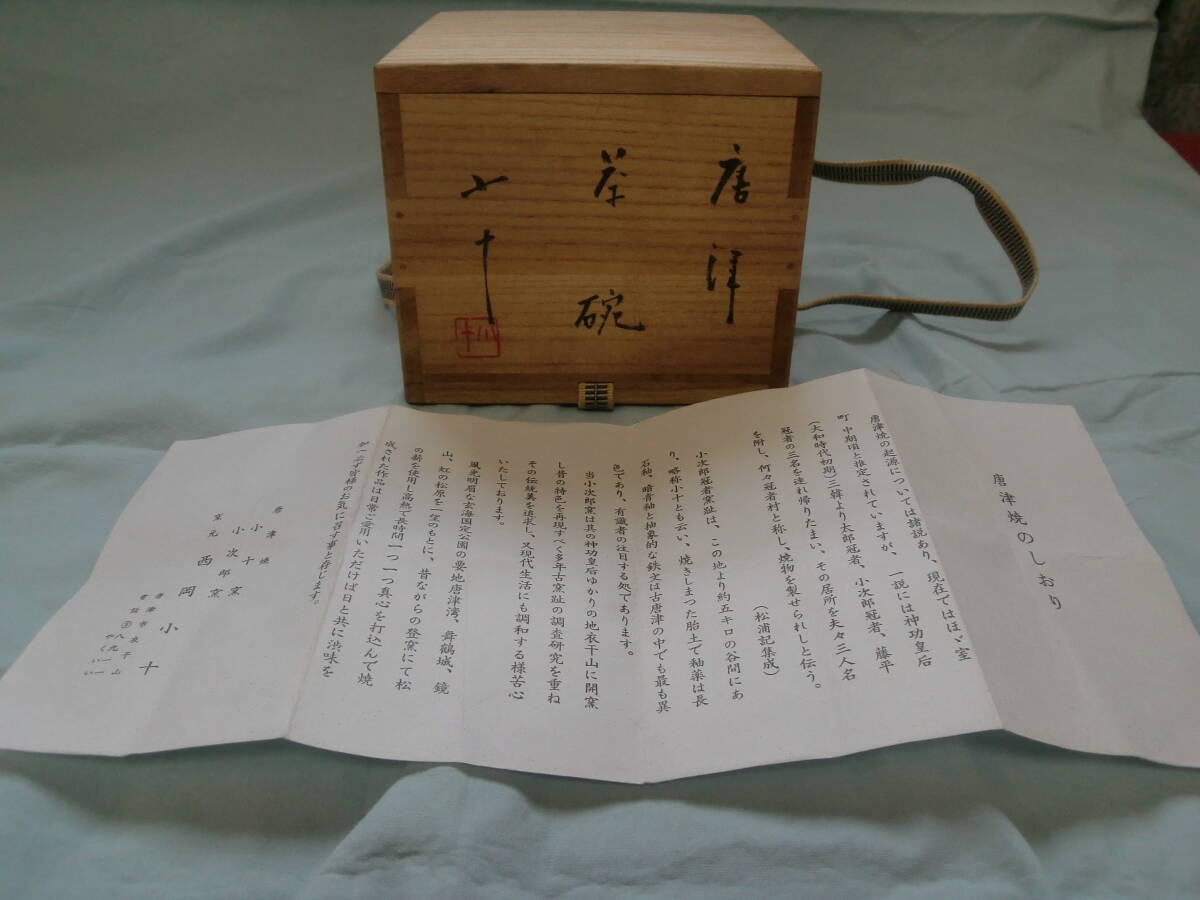 唐津
茶碗
小十
小十
唐津焼のしおり
唐津焼の起源については諸説あり、現在ではほゞ室
町中期頃と推定されていますが、一説には神功皇后
(大和時代初期)三韓より太郎冠者、小次郎冠者、藤平
冠者の三名を連れ帰りたまい、その居所を夫々三人名
を附し、何々冠者村と称し、焼物を製せられしと伝う。
(松浦記集成)
小次郎冠者窯趾は、この地より約五キロの谷間にあ
り、略称小十とも云い、焼きしまつた胎土で釉薬は長
石釉、暗青釉と抽象的な鉄文は古唐津の中でも最も異
色であり、有識者の注目する処であります。
当小次郎窯は其の神功皇后ゆかりの地衣干山に開窯
し昔の特色を再現すべく多年古窯趾の調査研究を重ね
その伝統美を追求し、又現代生活にも調和する様苦心
いたしております。
風光明眉な玄海国定公園の要地唐津湾、舞鶴城、鏡
山、虹の松原を一望のもとに、昔ながらの登窯にて松
の薪を使用し高熱で長時間一つ一つ真心を打込んで焼
成された作品は日常ご愛用いただけば日と共に渋味を
加へ必ず皆様のお気に召す事と存じます。
唐津焼
小十
小次郎窯
窯元 西岡小十
唐津市衣干山
電話②八九一一
やくいい